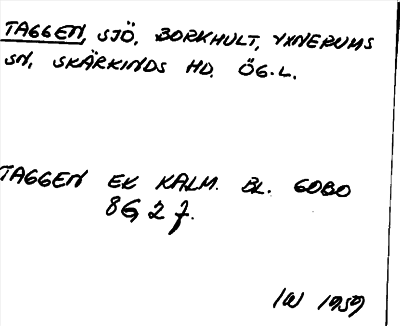 TAGGEN, SJÖ, BORKHULT, YXNERUMS
SN, SKÄRKINDS HD. ÖG.L.
TAGGEN EK KALM. BL. GOBO
8G 2 f.
IW 1959